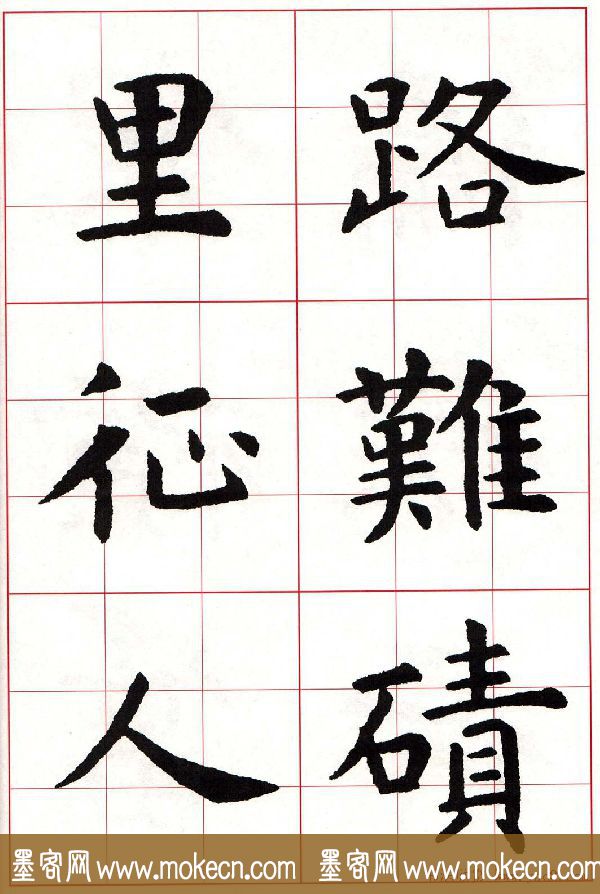 路難磧
里征人
墨客网 www.mokecn.com 墨客网 www.mokecn.com